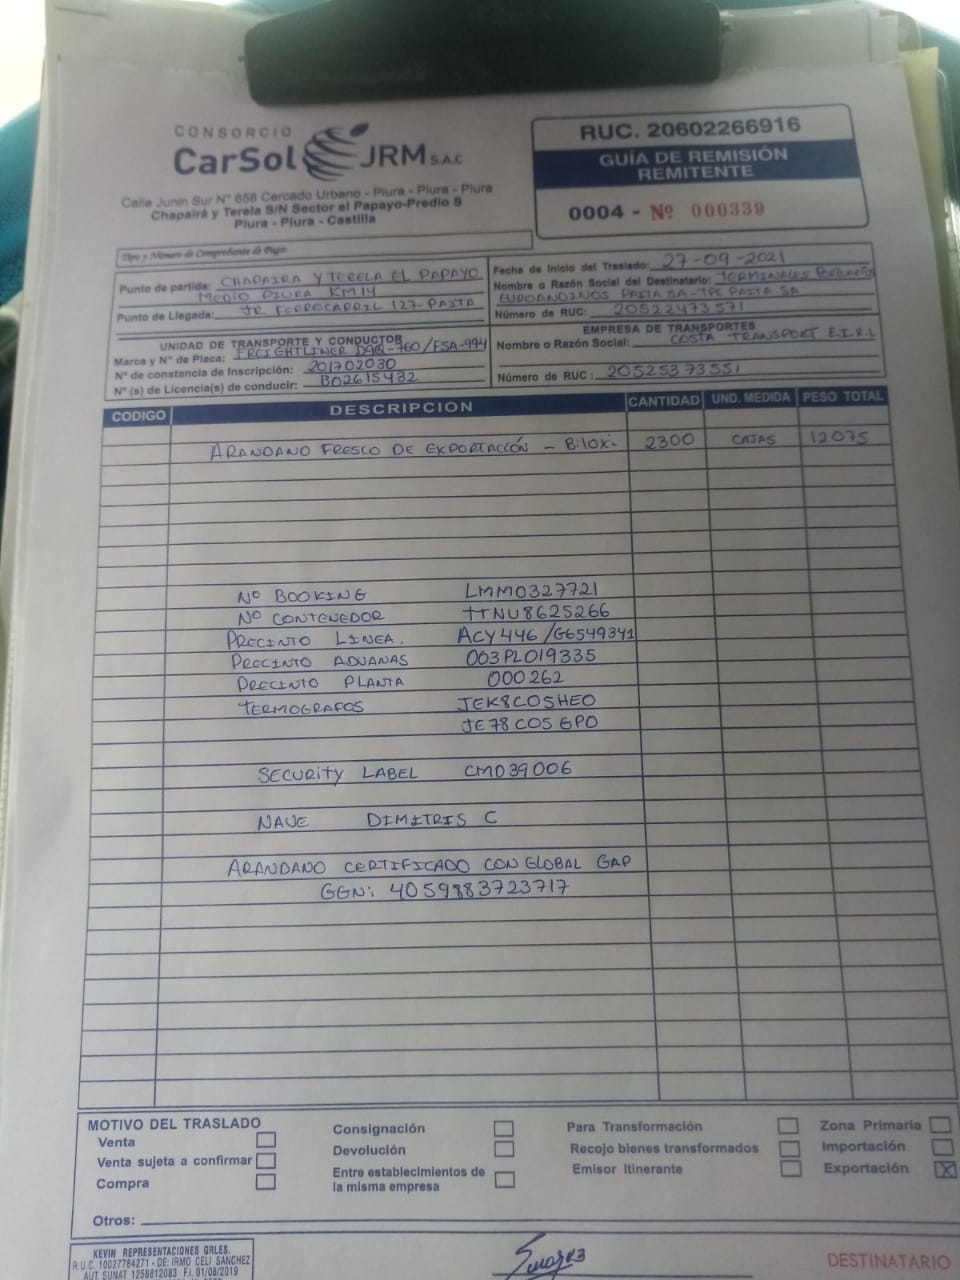 CONSORCIO
CarSol JRM S.A.C
Calle Junin Sur Nº 658 Cercado Urbano - Piura - Piura - Piura
Chapairá y Terela S/N Sector el Papayo-Predio S
Piura - Piura - Castilla
RUC. 20602266916
GUÍA DE REMISIÓN
REMITENTE
0004 - Nº 000339
Tipo y Número de Comprobante de Pago:
Punto de partida: CHAPAIRA Y TERELA EL PAPAYO
MEDIO PIURA KM14
Punto de Llegada: JR FERROCARRIL 127-PAITA
Fecha de Inicio del Traslado: 27-09-2021
Nombre o Razón Social del Destinatario: TERMINALES PORTUARIOS
EUROANDINOS PAITA SA-TPE PAITA SA
Número de RUC: 20522473571
UNIDAD DE TRANSPORTE Y CONDUCTOR
Marca y Nº de Placa: FREIGHTLINER D9Q-760/FSA-994
Nº de constancia de Inscripción: 201702030
Nº (s) de Licencia(s) de conducir: B02615432
EMPRESA DE TRANSPORTES
Nombre o Razón Social: COSTA TRANSPORT E.I.R.L
Número de RUC : 20525373551
CODIGO DESCRIPCION CANTIDAD UND. MEDIDA PESO TOTAL
ARANDANO FRESCO DE EXPORTACIÓN - Biloxi 2300 CAJAS 12075
Nº BOOKING LMM0327721
Nº CONTENEDOR TTNU8625266
PRECINTO LINEA. ACY446/G6549341
PRECINTO ADUANAS 003PL019335
PRECINTO PLANTA 000262
TERMOGRAFOS JEK8C05HE0
JE78C05GP0
SECURITY LABEL CM039006
NAVE DIMITRIS C
ARANDANO CERTIFICADO CON GLOBAL GAP
GGN: 4059883723717
MOTIVO DEL TRASLADO
Venta
Venta sujeta a confirmar
Compra
Consignación
Devolución
Entre establecimientos de
la misma empresa
Para Transformación
Recojo bienes transformados
Emisor Itinerante
Zona Primaria
Importación
Exportación X
Otros:
KEVIN REPRESENTACIONES GRLES.
R.U.C. 10027784271 - DE: IRMO CELI SANCHEZ
AUT. SUNAT 1258812083 F.I. 01/08/2019
DESTINATARIO